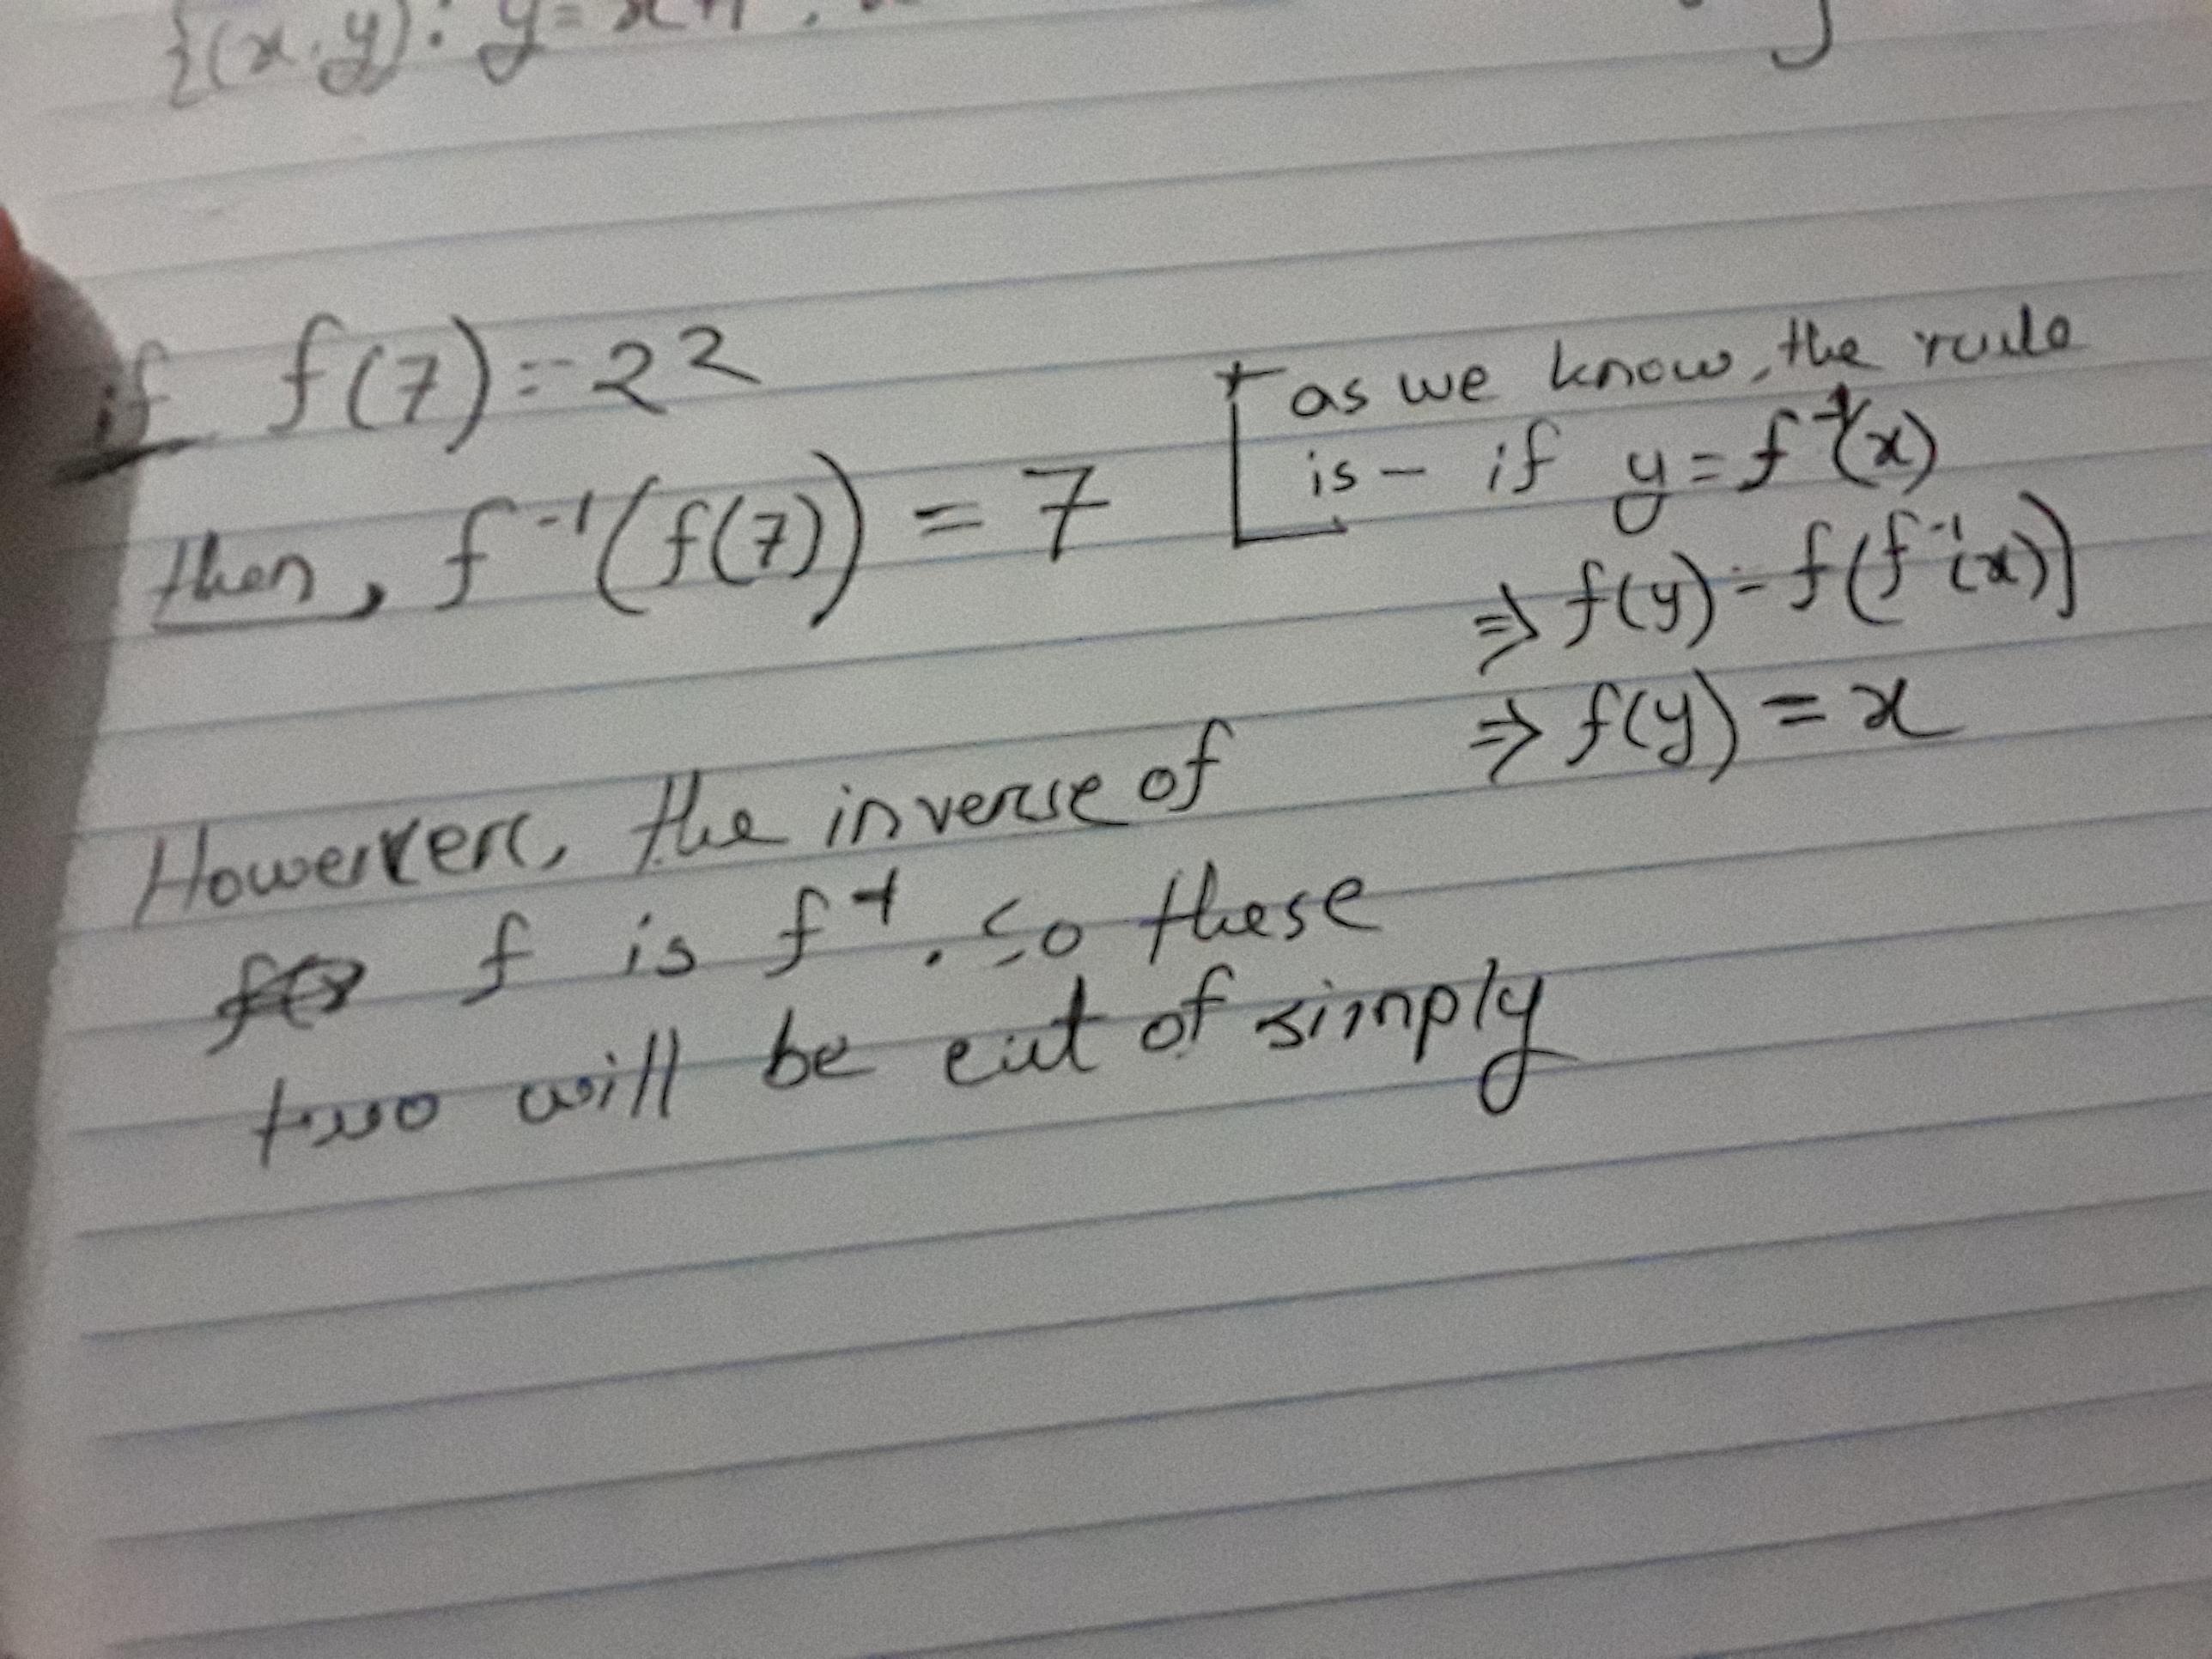 {(x,y): y=x+1,
if f(7)=22
then, f⁻¹(f(7)) = 7
[as we know, the rule
is – if y=f⁻¹(x)
⇒ f(y)=f(f⁻¹(x))
⇒ f(y) = x
However, the inverse of
f is f⁻¹. So these
two will be cut of simply